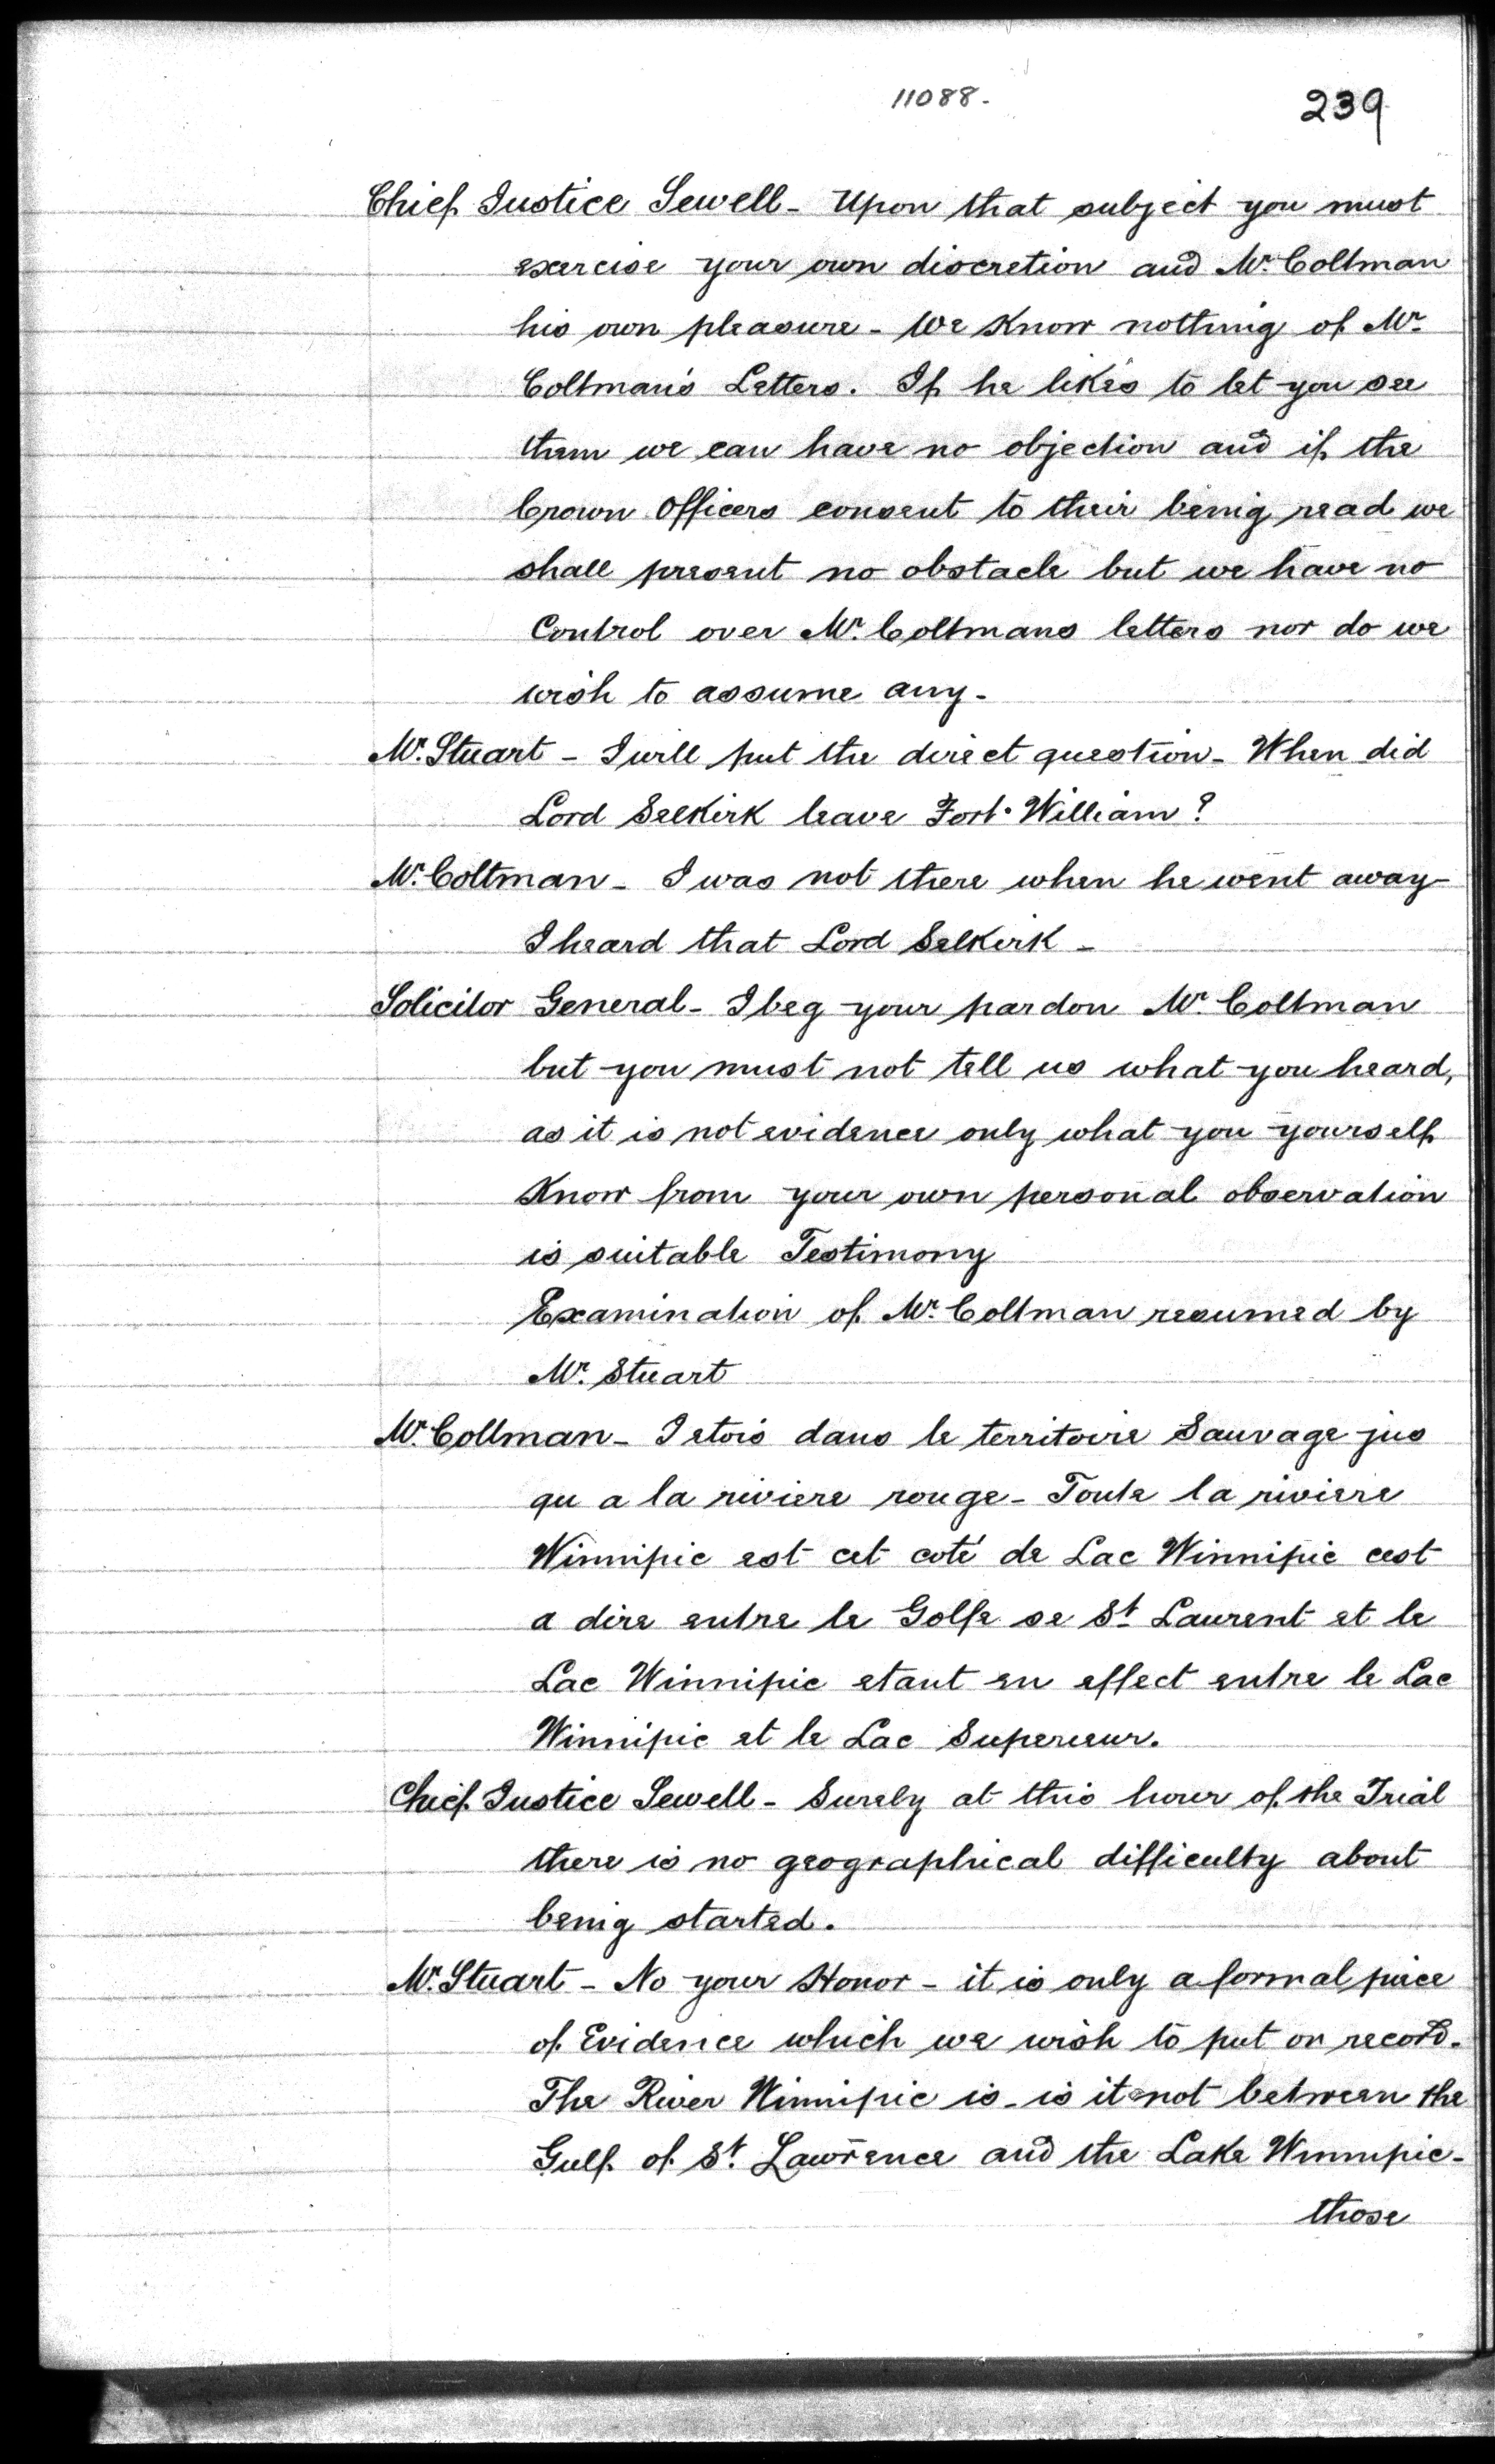 11088.
239
Chief Justice Sewell - Upon that subject you must
exercise your own discretion and Mr. Coltman
his own pleasure - We Know nothing of Mr.
Coltman's Letters. If he likes to let you see
them we can have no objection and if the
Crown Officers consent to their being read we
shall present no obstacle but we have no
Control over Mr. Coltmans letters nor do we
wish to assume any.
Mr. Stuart - I will put the direct question - When did
Lord Selkirk leave Fort William?
Mr. Coltman - I was not there when he went away -
I heard that Lord Selkirk -
Solicitor General - I beg your pardon Mr. Coltman
but you must not tell us what you heard,
as it is not evidence only what you yourself
Know from your own personal observation
is suitable Testimony
Examination of Mr. Coltman resumed by
Mr. Stuart
Mr. Coltman - J etois dans le territoire Sauvage jus
qu a la riviere rouge - Toute la riviere
Winnipic est cet coté de Lac Winnipic cest
a dire entre le Golfe se St. Laurent et le
Lac Winnipic etant en effect entre le Lac
Winnipic et le Lac Superieur.
Chief Justice Sewell - Surely at this hour of the Trial
there is no geographical difficulty about
being started.
Mr. Stuart - No your Honor - it is only a formal piece
of Evidence which we wish to put on record.
The River Winnipic is - is it not between the
Gulf of St. Lawrence and the Lake Winnipic -
those